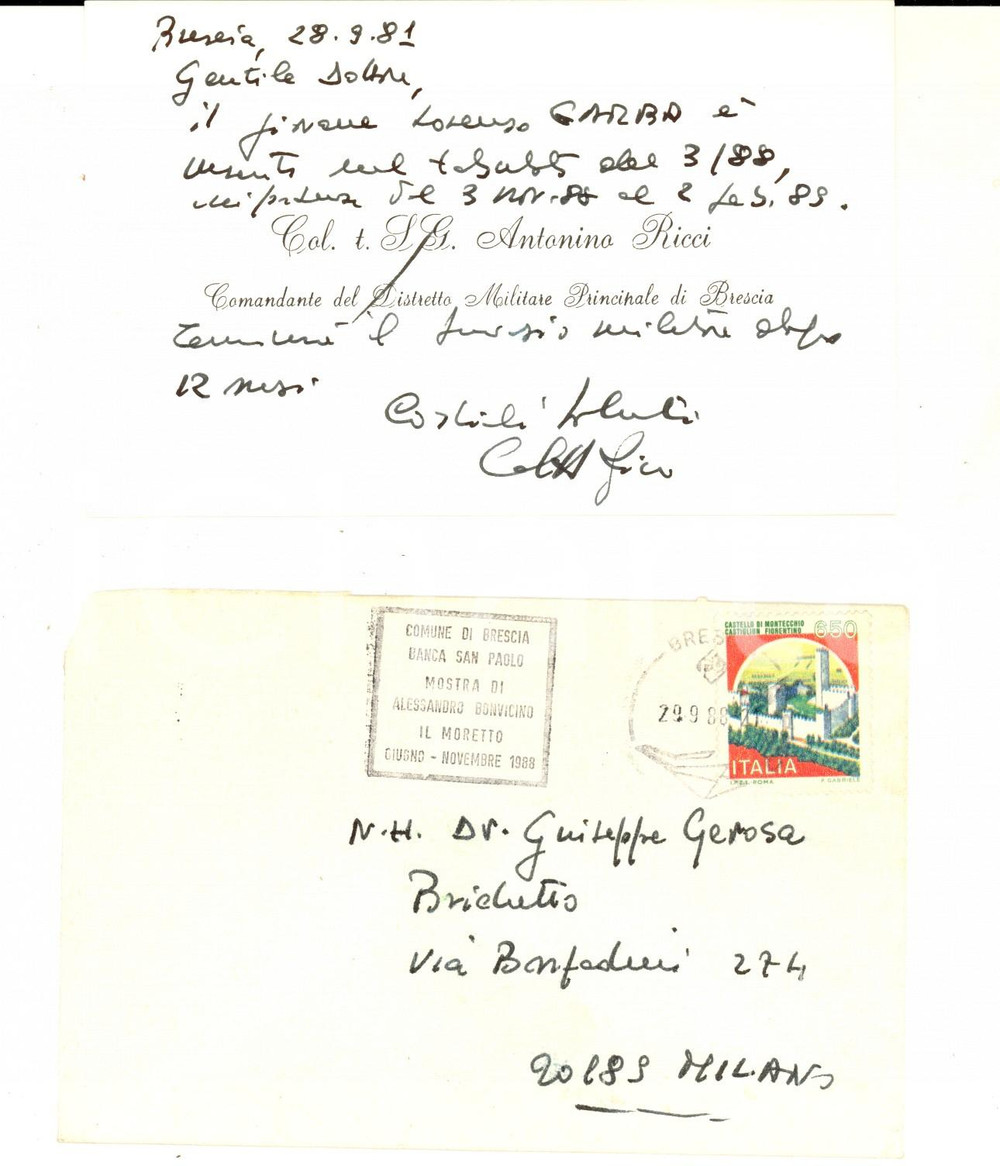 Brescia, 28.9.81
Gentile Dottore,
il giovane Lorenzo GARBA è
nel del 3/88,
dal 3 Nov. 88 al 2 feb. 89.
Col. t. SG. Antonino Ricci
Comandante del Distretto Militare Principale di Brescia
il servizio militare dopo
12 mesi
Cordiali saluti
COMUNE DI BRESCIA
BANCA SAN PAOLO
MOSTRA DI
ALESSANDRO BONVICINO
IL MORETTO
GIUGNO - NOVEMBRE 1988
BRES
29.9.88
CASTELLO DI MONTECCHIO
CASTIGLION FIORENTINO
650
ITALIA
I.P.Z.S. ROMA
F. GABRIELE
N.H. Dr. Guiseppe Gerosa
Brichetto
Via Bonfadini 274
20189 MILANO